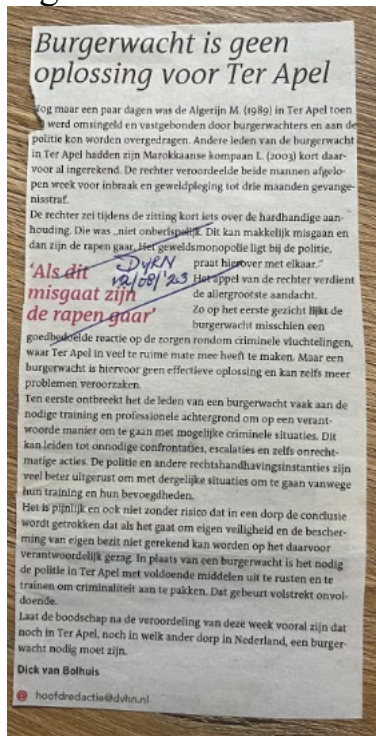 Burgerwacht is geen
oplossing voor Ter Apel
Nog maar een paar dagen was de Algerijn M. (1989) in Ter Apel toen
werd omsingeld en vastgebonden door burgerwachters en aan de
politie kon worden overgedragen. Andere leden van de burgerwacht
in Ter Apel hadden zijn Marokkaanse kompaan L. (2003) kort daar-
voor al ingerekend. De rechter veroordeelde beide mannen afgelo-
pen week voor inbraak en geweldpleging tot drie maanden gevange-
nisstraf.
De rechter zei tijdens de zitting kort iets over de hardhandige aan-
houding. Die was „niet onberispelijk. Dit kan makkelijk misgaan en
dan zijn de rapen gaar. Het geweldsmonopolie ligt bij de politie,
praat hierover met elkaar.”
Het appel van de rechter verdient
de allergrootste aandacht.
Zo op het eerste gezicht lijkt de
burgerwacht misschien een
‘Als dit
misgaat zijn
de rapen gaar’
DvhN
12/08/'23
goedbedoelde reactie op de zorgen rondom criminele vluchtelingen,
waar Ter Apel in veel te ruime mate mee heeft te maken. Maar een
burgerwacht is hiervoor geen effectieve oplossing en kan zelfs meer
problemen veroorzaken.
Ten eerste ontbreekt het de leden van een burgerwacht vaak aan de
nodige training en professionele achtergrond om op een verant-
woorde manier om te gaan met mogelijke criminele situaties. Dit
kan leiden tot onnodige confrontaties, escalaties en zelfs onrecht-
matige acties. De politie en andere rechtshandhavingsinstanties zijn
veel beter uitgerust om met dergelijke situaties om te gaan vanwege
hun training en hun bevoegdheden.
Het is pijnlijk en ook niet zonder risico dat in een dorp de conclusie
wordt getrokken dat als het gaat om eigen veiligheid en de bescher-
ming van eigen bezit niet gerekend kan worden op het daarvoor
verantwoordelijk gezag. In plaats van een burgerwacht is het nodig
de politie in Ter Apel met voldoende middelen uit te rusten en te
trainen om criminaliteit aan te pakken. Dat gebeurt volstrekt onvol-
doende.
Laat de boodschap na de veroordeling van deze week vooral zijn dat
noch in Ter Apel, noch in welk ander dorp in Nederland, een burger-
wacht nodig moet zijn.
Dick van Bolhuis
@ hoofdredactie@dvhn.nl